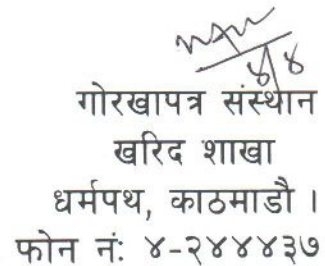 गोरखापत्र संस्थान
खरिद शाखा
धर्मपथ, काठमाडौ ।
फोन नं: ४-२४४४३७